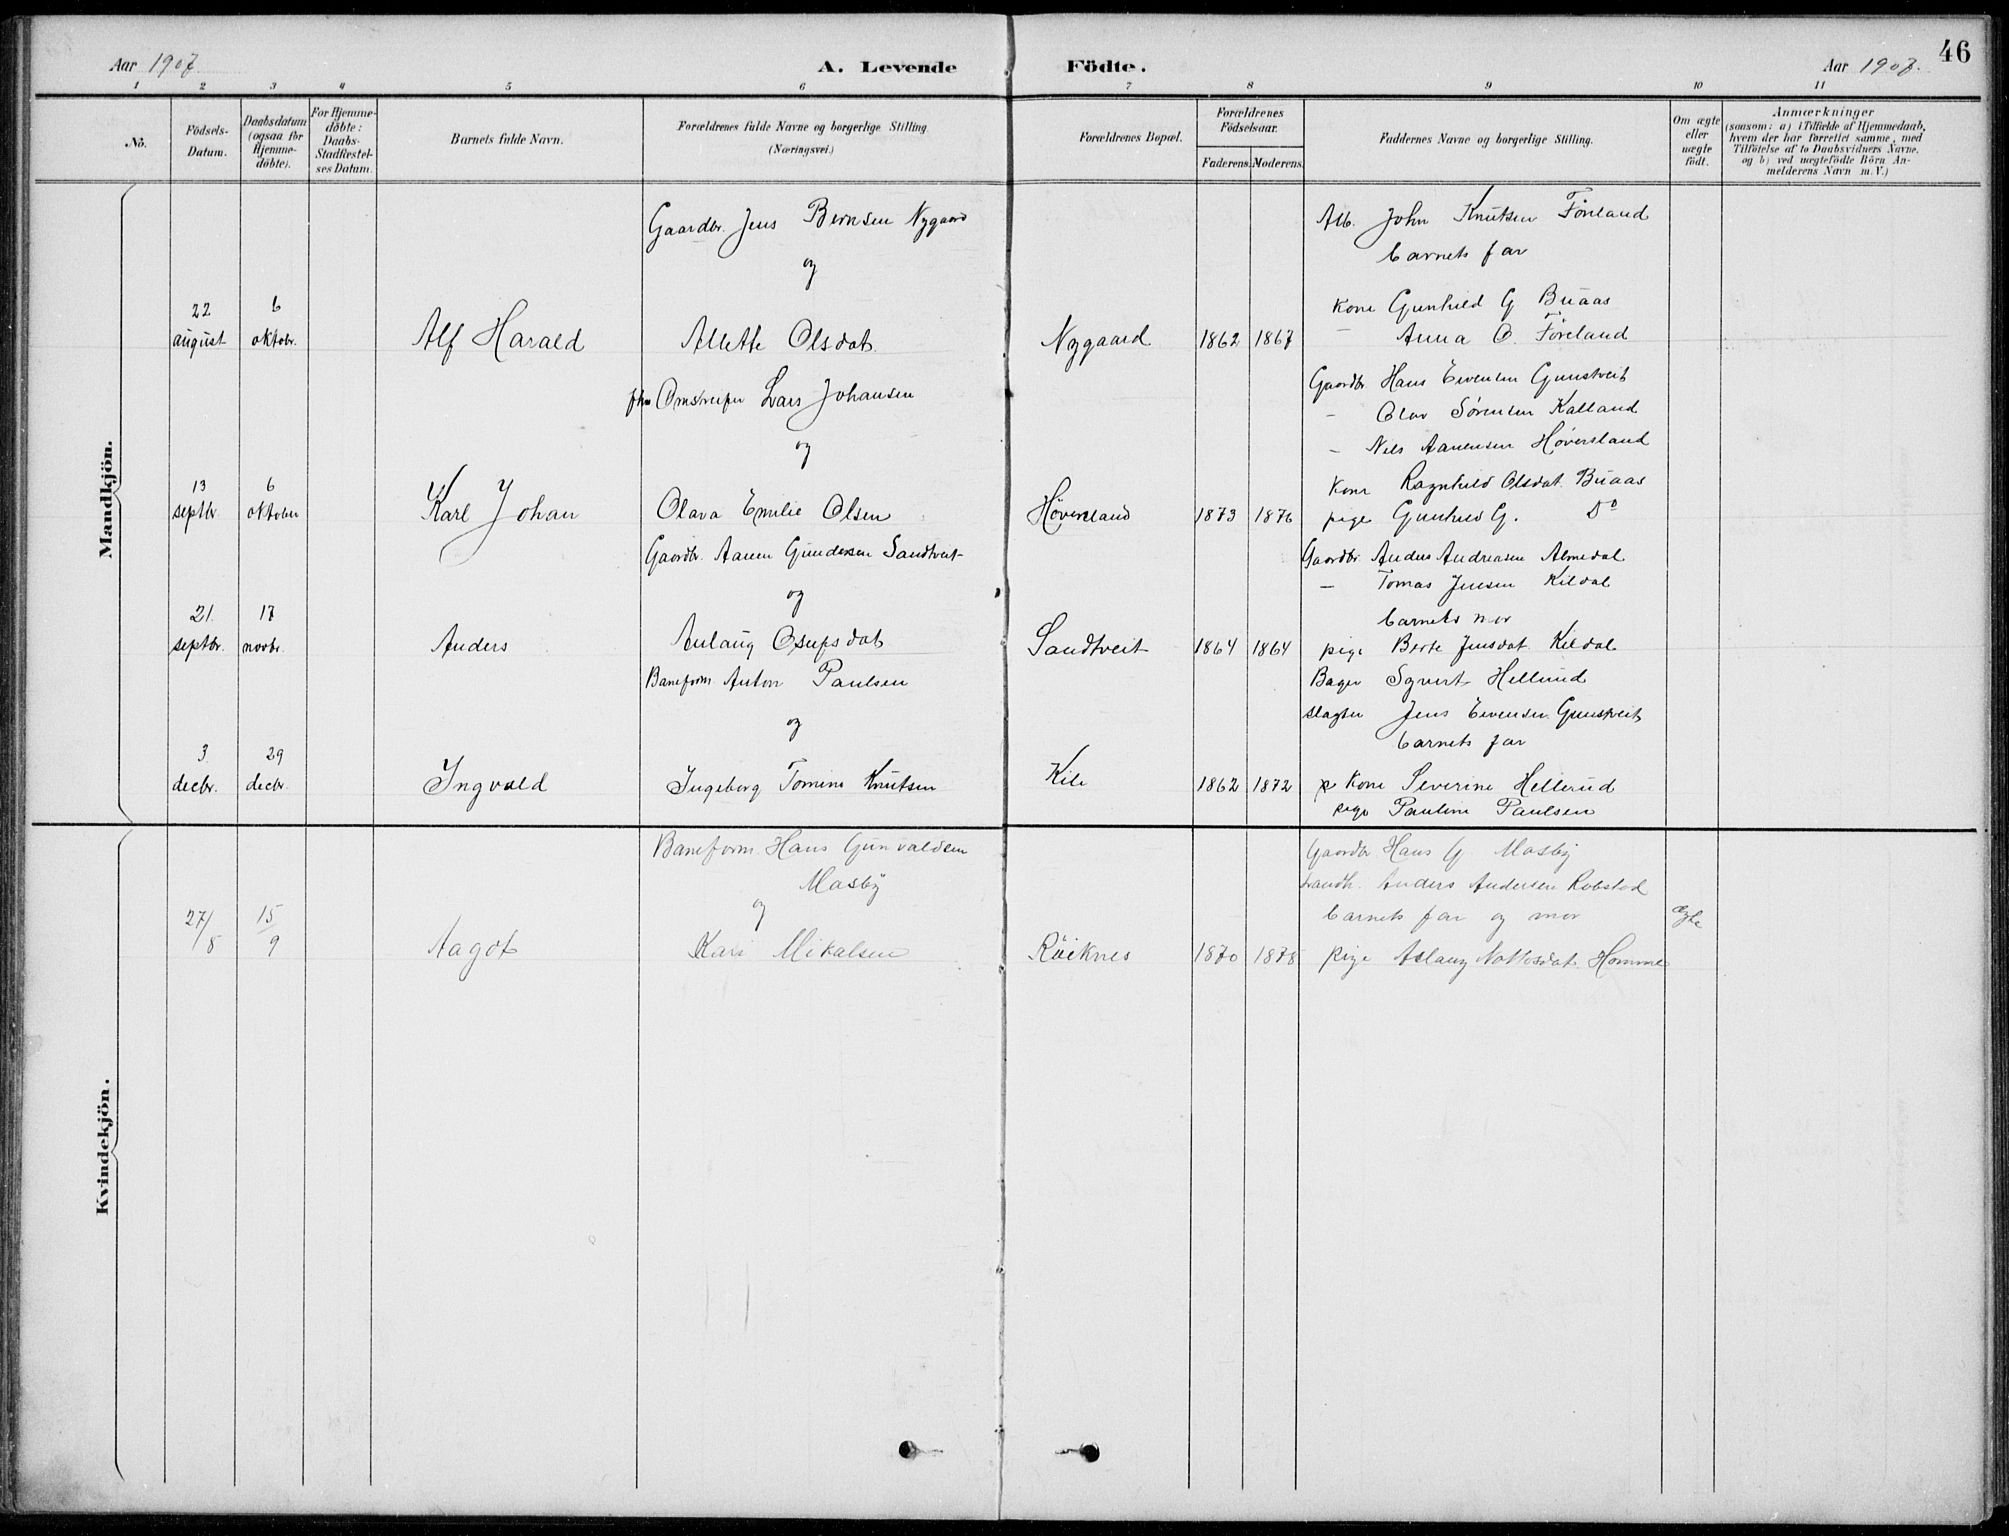 46
Aar 1907
A. Levende
Födte.
Aar 1907.
1 2 3 4 5 6 7 8 9 10 11
No.
Födsels-Datum.
Daabsdatum (ogsaa for Hjemme-döbte).
For Hjemme-döbte: Daabs-Stadfestel-ses Datum.
Barnets fulde Navn.
Forældrenes fulde Navne og borgerlige Stilling (Næringsvei.)
Forældrenes Bopæl.
Forældrenes Födselsaar.
Faderens. Moderens.
Faddernes Navne og borgerlige Stilling.
Om ægte eller uægte födt.
Anmærkninger
(saasom: a) i Tilfælde af Hjemmedaab,
hvem der har forrettet samme, med
Tilföielse af to Daabsvidners Navne,
og b) ved uægtefödte Börn An-
melderens Navn m. V.)
Mandkjön.
Gaardbr. Jens Bernsen Nygaard
og
22 august
6 oktobr.
Alf Harald
Alette Olsdat.
Nygaard
1862 1867
Arb. John Knutsen Føreland
barnets far
kone Gunhild G Buaas
– Anna O. Føreland
Omstreifer Lars Johansen
og
13 septbr.
6 oktober
Karl Johan
Olava Emilie Olsen
Høversland
1873 1876
Gaardbr Hans Evensen Gunstveit
– Olav Sørensen Kalland
– Nels Aanensen Høversland
kone Ragnhild Olsdat. Buaas
pige Gunhild G. Do
Gaardbr. Aanen Gundersen Sandtveit
og
21. septbr.
17 novbr.
Anders
Aslaug Osufsdat
Sandtveit
1864 1864
Gaardbr. Anders Andreasen Almedal
– Tomas Jensen Kildal
barnets mor
pige Berte Jensdat. Kildal
Baneform. Anton Paulsen
og
3 decbr.
29 decbr.
Ingvald
Ingeborg Tomine Knutsen
Kile
1862 1872
Bager Syvert Hellerud
slagter Jens Evensen Gunstveit
barnets far
kone Severine Hellerud
pige Pauline Paulsen
Kvindekjön.
Baneform. Hans Gunvaldsen
Mosby
og
27/8
15/9
Aagot
Kari Mikalsen
Røiknes
1870 1878
Gaardbr Hans G. Mosby
Landh. Anders Andersen Robstad
barnets far og mor
pige Aslaug Nottosdat. Homme
ægte